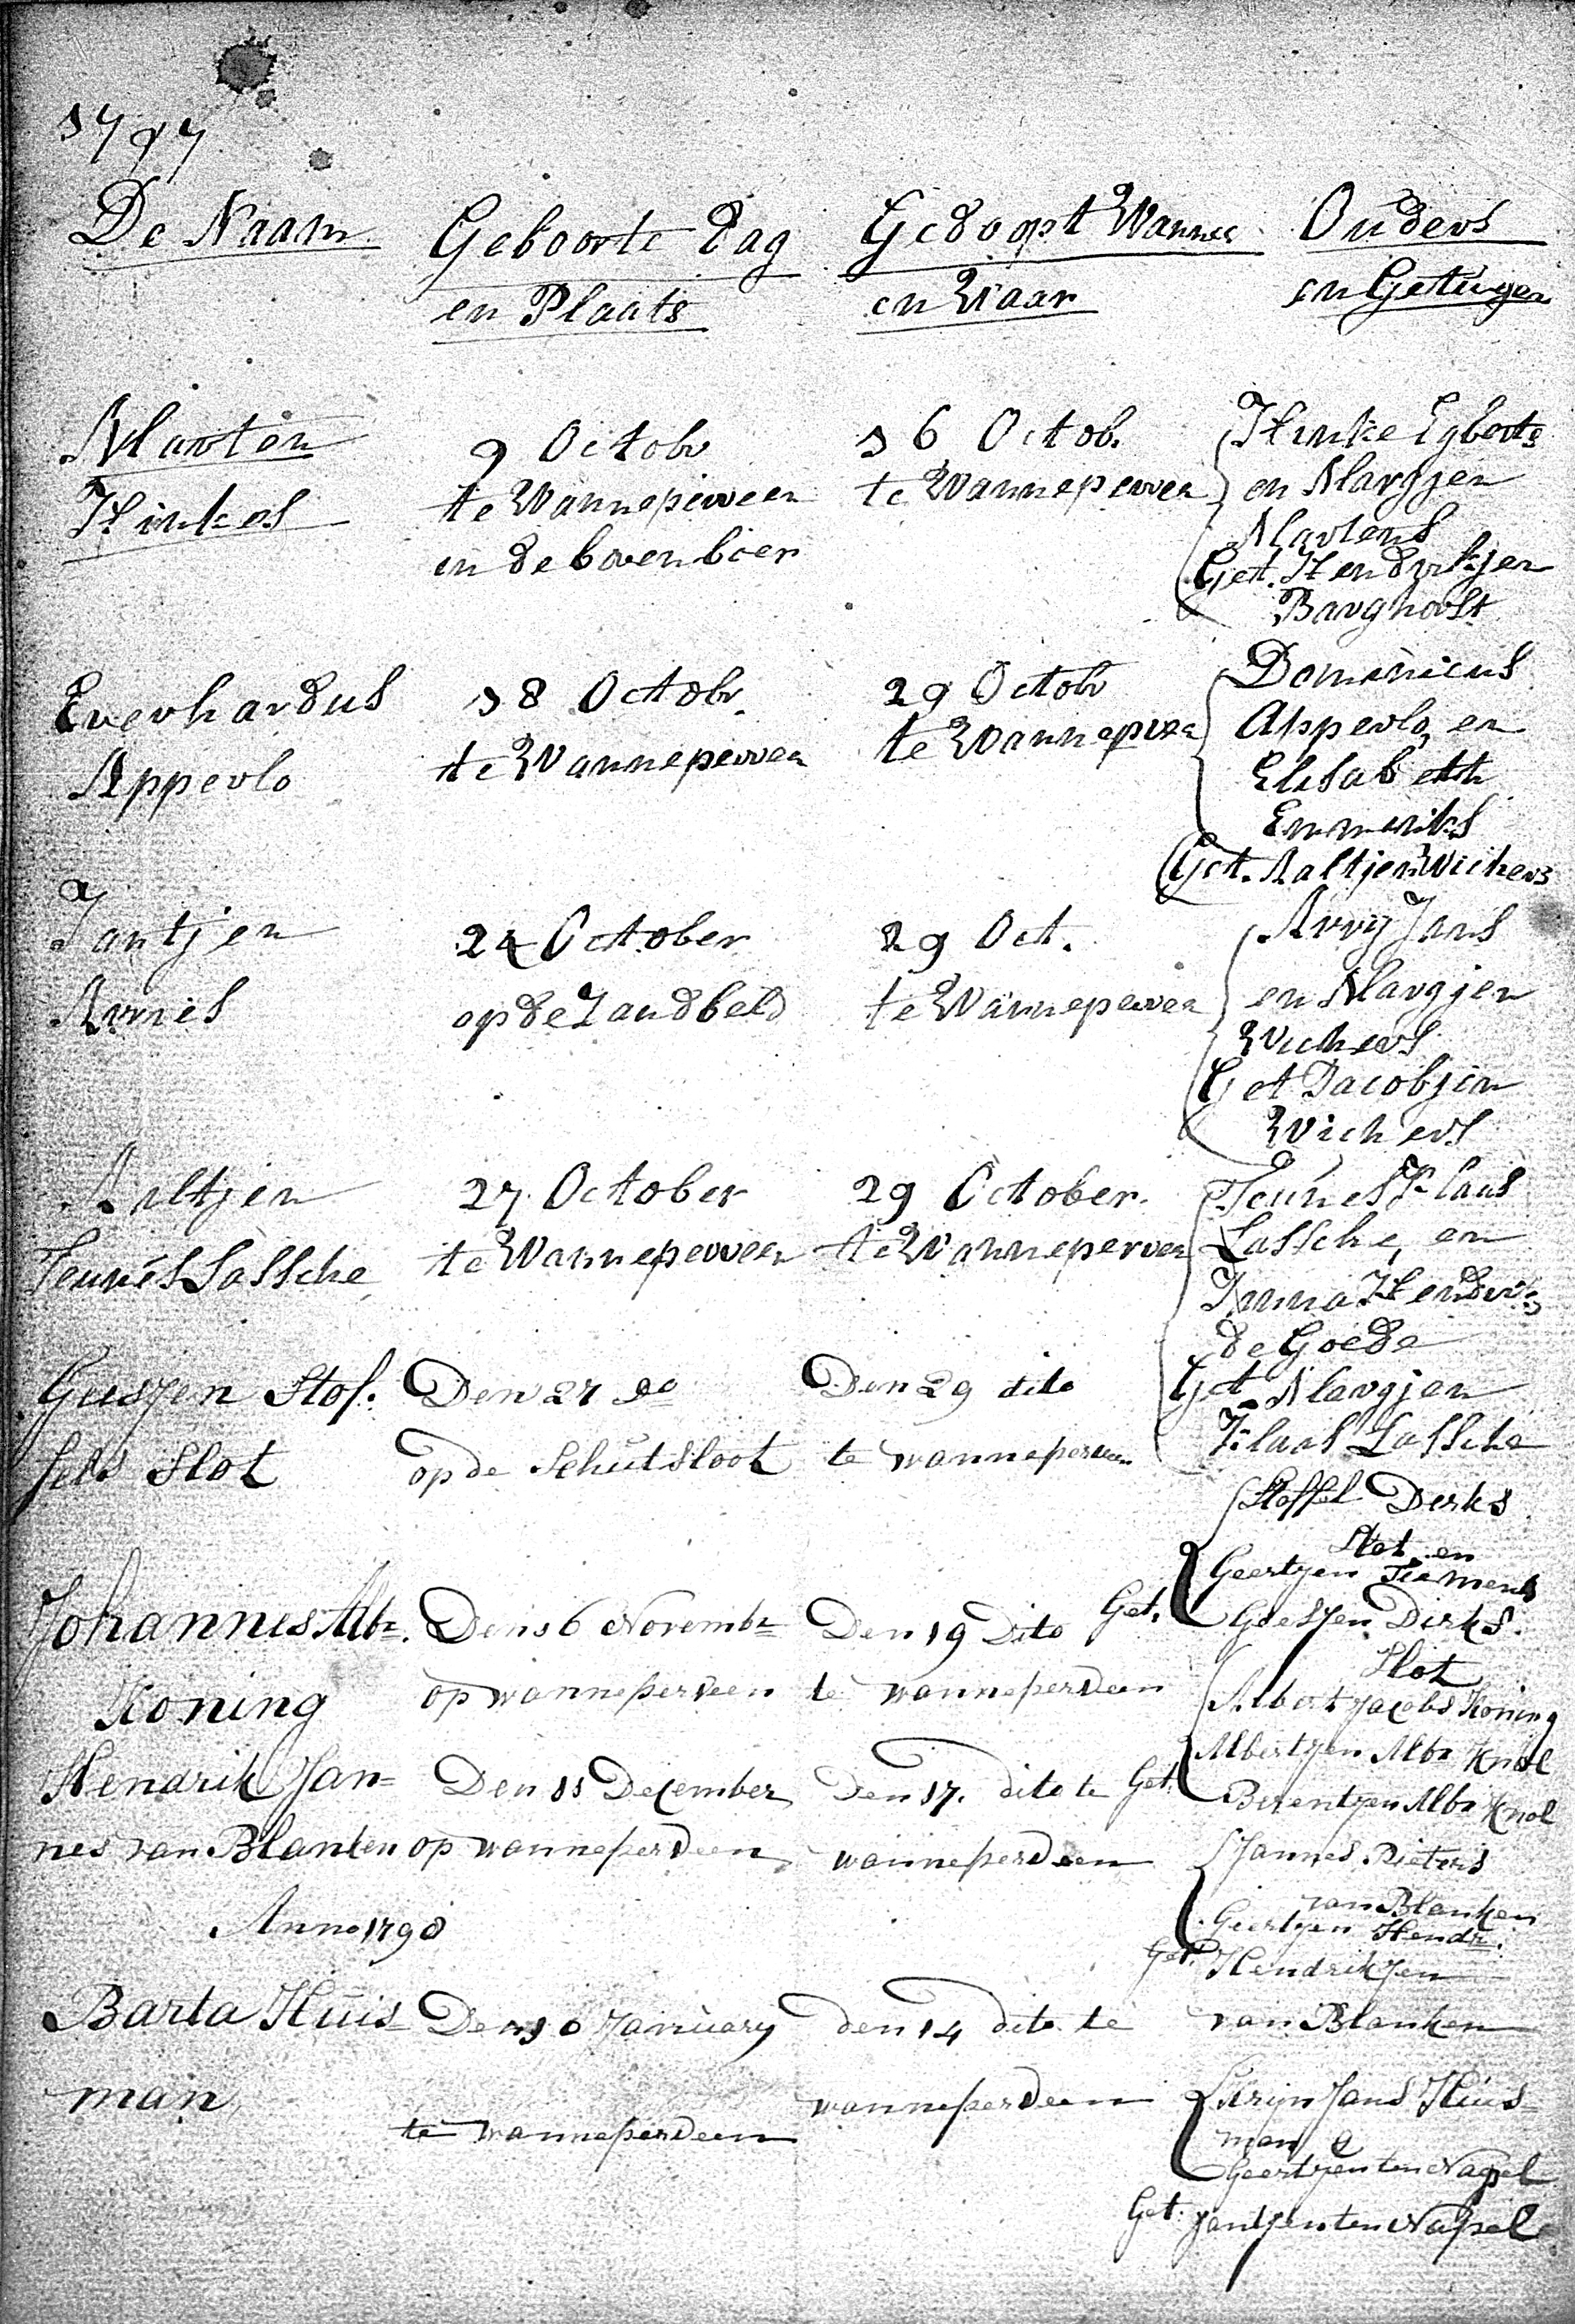 1797
De Naam
Geboorte Dag
en Plaats
Gedoopt Wannee
en Waar
Ouders
en Getuigen
Marten
Hinkes
9 Octobr
te Wanneperveen
in de bovenboer
16 Octob.
te Wanneperveen
Hinke Egberts
en Margjen
Martens
Get. Hendrikjen
Barghorst
Everhardus
Apperlo
18 Octobr.
te Wanneperveen
29 Octobr
te Wanneperveen
Dominicus
Apperlo, en
Elisabeth
Emmeriks
Get. Aaltjen Wichers
Jantjen
Arries
24 October
op de Zandbeld
29 Oct.
te Wanneperveen
Arry Jans
en Margjen
Wichers
Get Jacobjen
Wichers
Aaltjen
Teunes Lassche
27. October
te Wanneperveen
29 October.
te Wanneperveen
Teunes Klaas
Lassche, en
Anna Hendriks
de Goede
Get. Margjen
Klaas Lassche
Geesjen Stof.
fels Slot
Den 27 do
op de Schutsloot
Den 29 dito
te wanneperveen
Stoffel Derks
Slot en
Geertjen Tiemens
Get. Geesjen Dirks.
Slot
Johannes Albr.
Koning
Den 16 Novembr
op wanneperveen
Den 19 Dito
te wanneperveen
Albert Jacobs Koning
Albertjen Albr Knol
Get. Berentjen Albr Knol
Hendrik Jan=
nes van Blanken
Den 11 December
op wanneperveen
Den 17. dito te
wanneperveen
Jannes Pieters
van Blanken
Geertjen Hendr.
Get. Hendrikjen
van Blanken
Anno 1798
Barta Huis
man
Den 10 January
te wanneperveen
den 14 dito te
wanneperveen
Krijn Jans Huis
man
Geertjen ten Napel
Get. Jantjen ten Napel